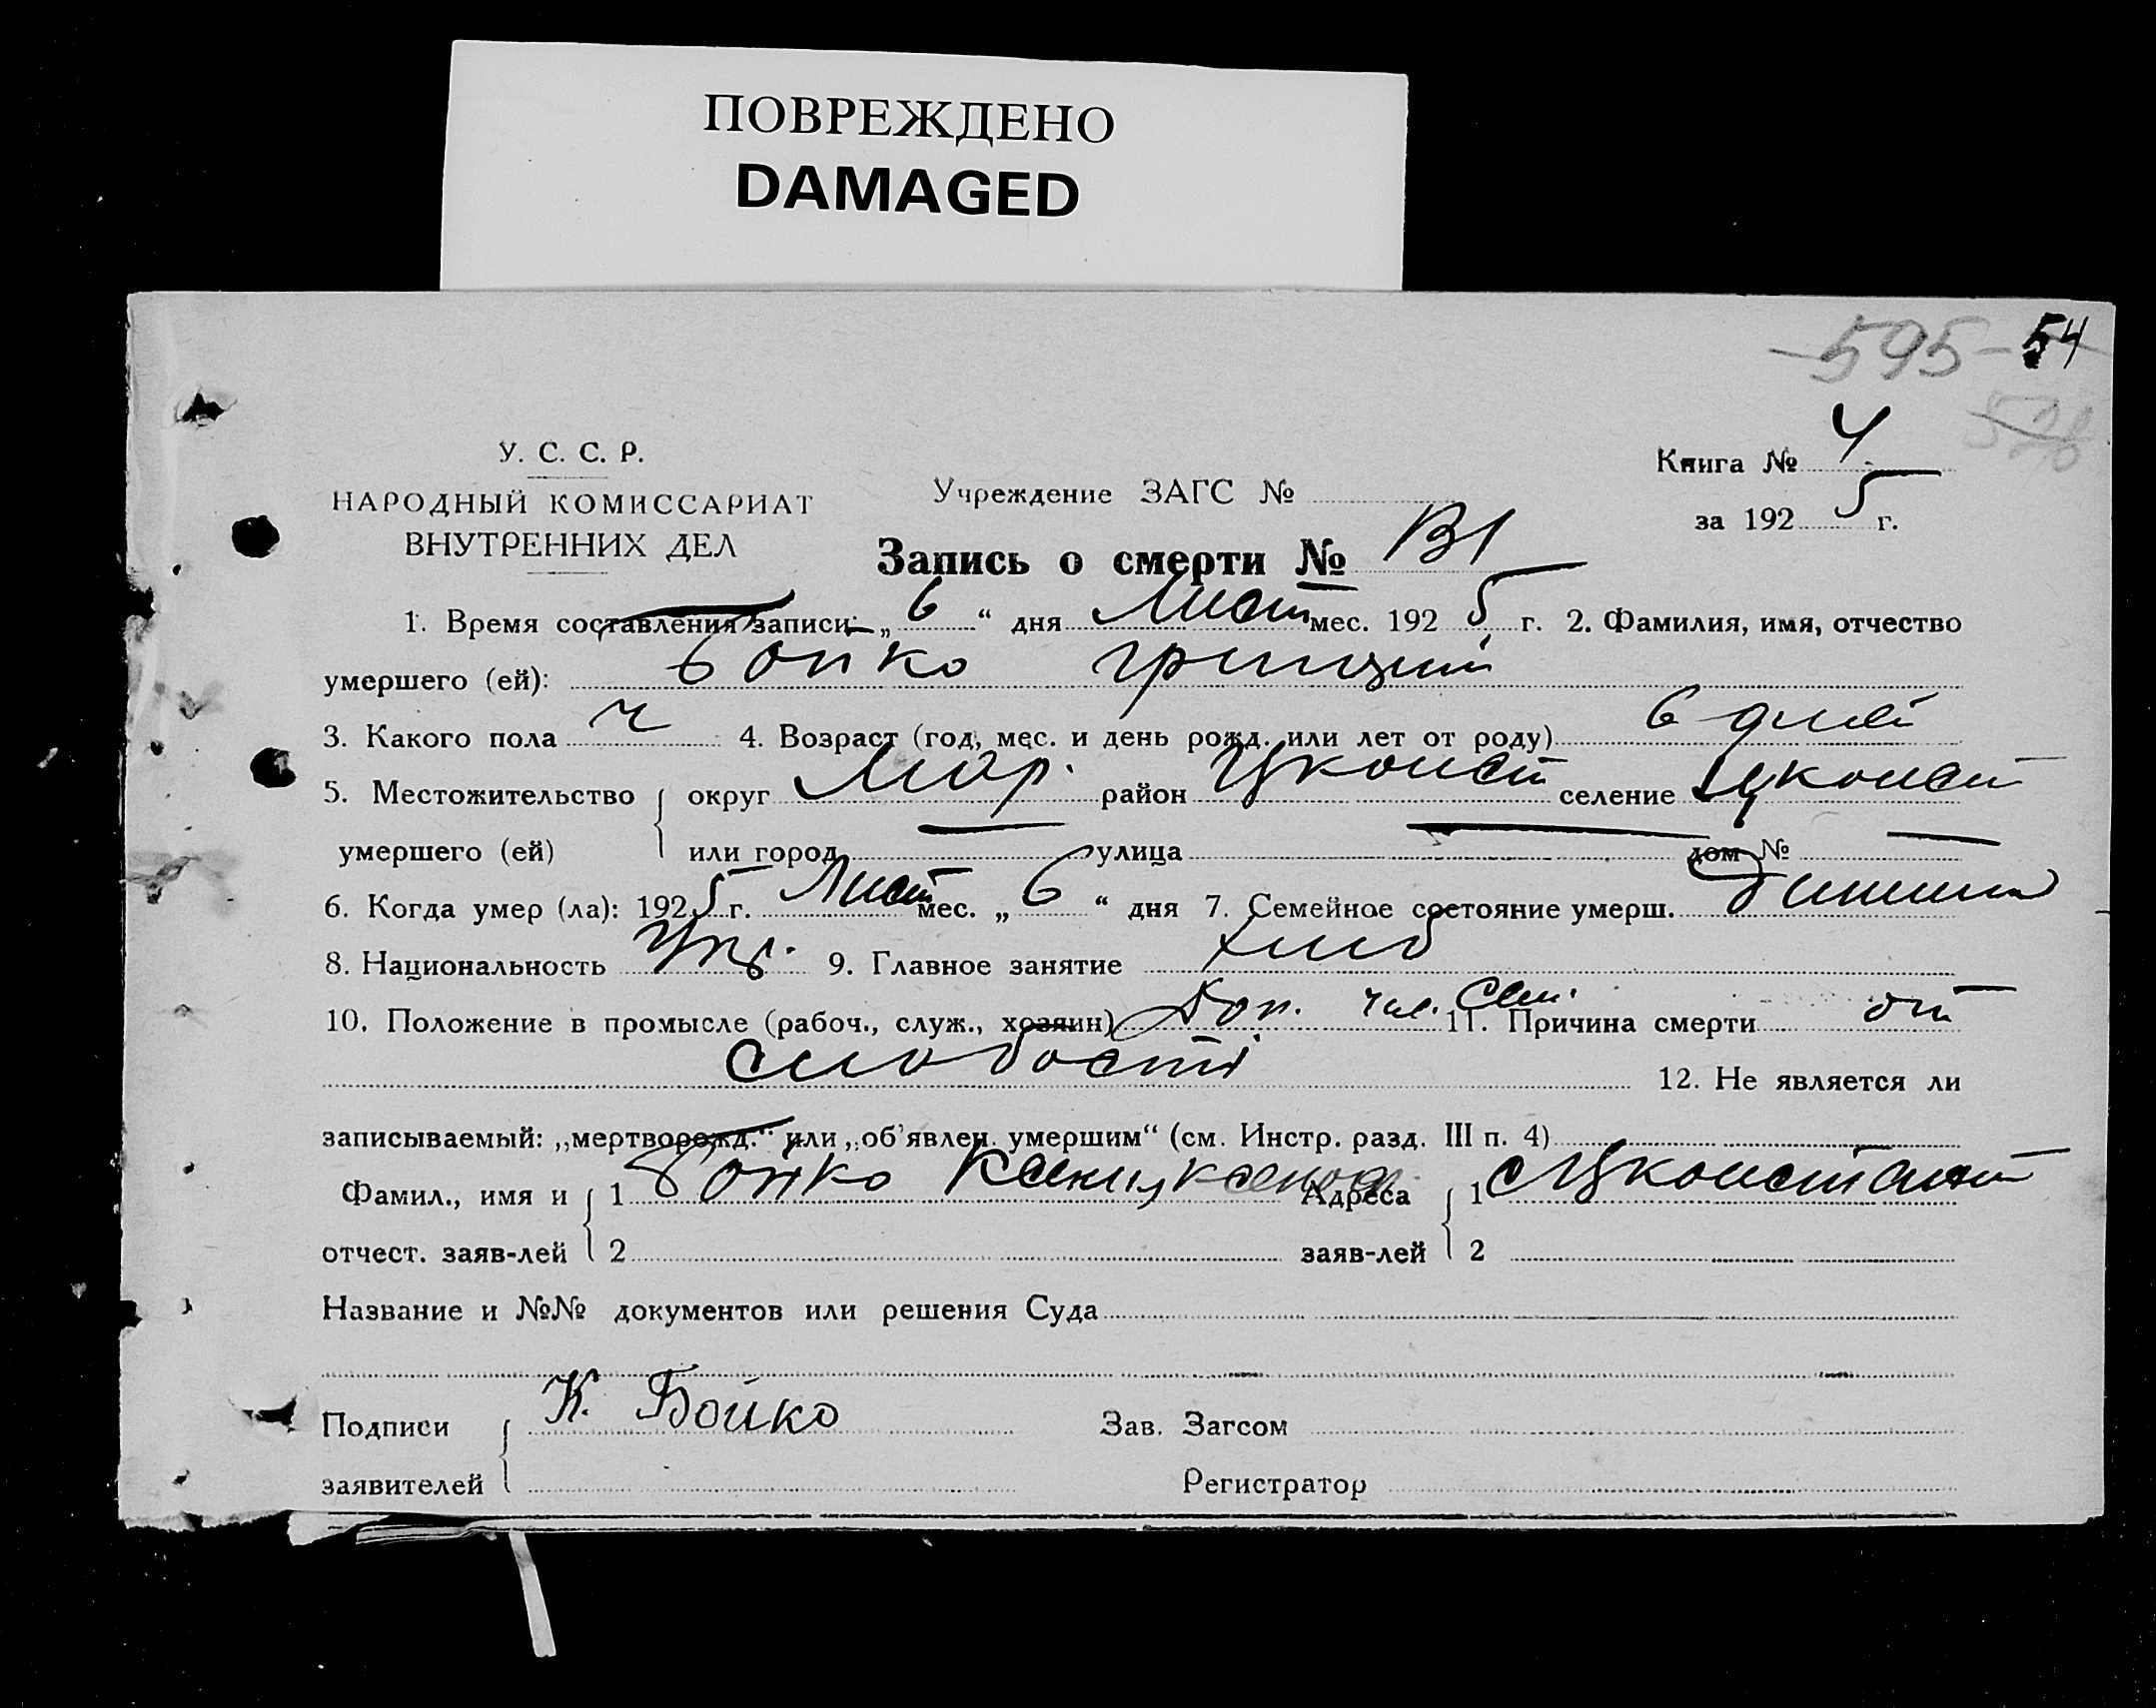 ПОВРЕЖДЕНО
DAMAGED
595 - 54
528
У. С. С. Р.
НАРОДНЫЙ КОМИССАРИАТ
ВНУТРЕННИХ ДЕЛ
Учреждение ЗАГС №
Книга № 4
за 1925 г.
Запись о смерти №
1. Время составления записи: „ 6 “ дня Лист мес. 1925 г. 2. Фамилия, имя, отчество
умершего (ей): Бойко Григорий
3. Какого пола ч 4. Возраст (год, мес. и день рожд. или лет от роду) 6 дней
5. Местожительство округ Мар. район Цконст селение Цконст
умершего (ей) или город улица дом №
6. Когда умер (ла): 1925 г. Лист мес. „ 6 “ дня 7. Семейное состояние умерш.
8. Национальность Укр. 9. Главное занятие хліб
10. Положение в промысле (рабоч., служ., хозяин) Доп. чл. сем. 11. Причина смерти от
слабості 12. Не является ли
записываемый: „мертворожд.“ или „об'явлен. умершим“ (см. Инстр. разд. III п. 4)
Фамил., имя и 1 Бойко Адреса 1 с Цконстант
отчест. заяв-лей 2 заяв-лей 2
Название и №№ документов или решения Суда
Подписи К. Бойко Зав. Загсом
заявителей Регистратор